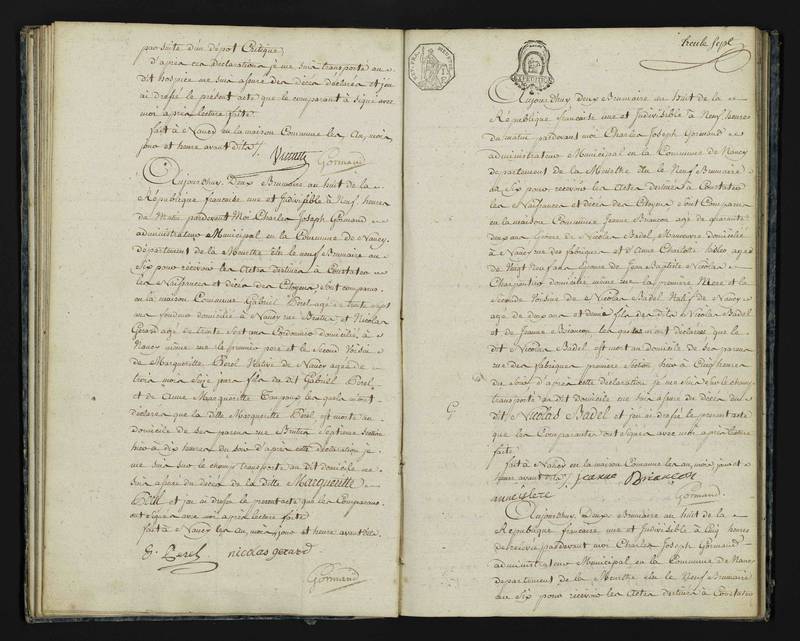 par suite d'un dépot Critique
d'après cea Déclarationa je me suia transporté au
dit hospice me suia assuré dea décèa déclaréa et j'en
ai dressé le présent acte que le comparant à Signé avec
moi après lecture faite
fait à Nancy en la maison Commune les An, moia
jour et heure avant dita
Gormand
Aujourdhuy Deux Brumaire au huit de la
République française une et Indivisible à Neuf heures
du Matin pardevant Moi Charles Joseph Gormand
administrateur Municipal en la Commune de Nancy
département de la Meurthe élu le neuf Brumaire an
Six pour recevoir les Actea destinéa à Constater
les Naissancea et décèa dea Citoyena sont comparua
en la maison Commune Gabriel Porel agé de trente sept
ana domicilié à Nancy rue Brutus et Nicolas
Gerard agé de trente sept ana Cordonnier domicilié à
Nancy même rue le premier pere et le Second Voisin
de Margueritte Porel Native de Nancy agée de
troia moia Seize joura fille du dit Gabriel Porel
et de Anne Margueritte les quela m'ont
déclaréa que la ditte Margueritte Porel est morte au
domicile de sea parena rue Brutus Septieme Section
hier à dix heures du soir d'après cette déclaration je
me suia sur le champ transporté au dit domicile me
suia assuré du décèa de la ditte Margueritte
Porel et j'ai dressé le présent acte que les Comparans
ont Signéa avec moi après lecture faite
fait à Nancy les an, moia jour et heure avant dita
G. Porel nicolas gerard
Gormand
trente sept
Aujourdhuy Deux Brumaire au huit de la
République française une et Indivisible à Neuf heures
du matin pardevant moi Charles Joseph Gormand
administrateur Municipal en la Commune de Nancy
département de la Meurthe élu le Neuf Brumaire
an Six pour recevoir les Actea destinéa à Constater
les Naissancea et décèa dea Citoyena sont Comparua
en la maison Commune Jeanne Briancon agé de quarante
deux ana Epouse de Nicolas Badel, Manoeuvre domiciliée
à Nancy rue des fabriques et d'Anne Charlotte agée
de Vingt Neuf ana Epouse de Jean Baptiste Nicolas
Charpentier domiciliée même rue la premiere Mere et la
Seconde Voisine de Nicolas Badel Natif de Nancy
agé de deux ana et demi fila dea dita Nicolas Badel
et de Jeanne Briancon les quelea m'ont déclaréea que le
dit Nicolas Badel est mort au domicile de sea parena
rue dea fabriques premiere Section hier à Cinq heures
du Soir d'après cette déclaration je me suia sur le champ
transporté au dit domicile me suia assuré du décèa du
dit Nicolas Badel et j'en ai dressé le présent acte
que les Comparantea ont Signéa avec moi après lecture
faite
fait à Nancy en la maison Commune les an, moia jour et
heure avant dita jeanne Briancon
Gormand
Aujourdhuy Deux Brumaire au huit de la
République française une et Indivisible à Cinq heures
de relevée pardevant moi Charles Joseph Gormand
administrateur Municipal en la Commune de Nancy
département de la Meurthe élu le Neuf Brumaire
an Six pour recevoir les Actea destinéa à Constater